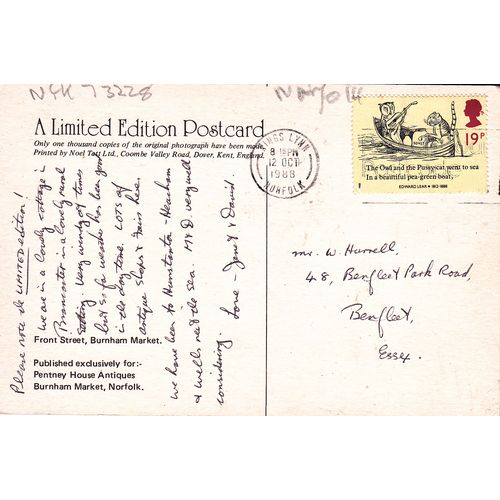 NYK 73228
Norfolk
A Limited Edition Postcard
Only one thousand copies of the original photograph have been made.
Printed by Noel Tatt Ltd., Coombe Valley Road, Dover, Kent, England.
Please note the LIMITED edition!
We are in a lovely cottage in
Brancaster in a lovely rural
setting. Very windy at times
but so far weather has been good
in the daytime. LOTS of
antique shops & fairs here
we have been to Hunstanton - Heacham
& Wells next the Sea. M & D very well
considering. Love - Janet & David.
Front Street, Burnham Market.
Published exclusively for:-
Pentney House Antiques
Burnham Market, Norfolk.
KINGS LYNN
8 15 PM
12 OCT
1988
NORFOLK
19P
The Owl and the Pussy-cat went to sea
In a beautiful pea-green boat,
EDWARD LEAR • 1812-1888
Mr. W. Hurrell,
48, Benfleet Park Road,
Benfleet,
Essex.